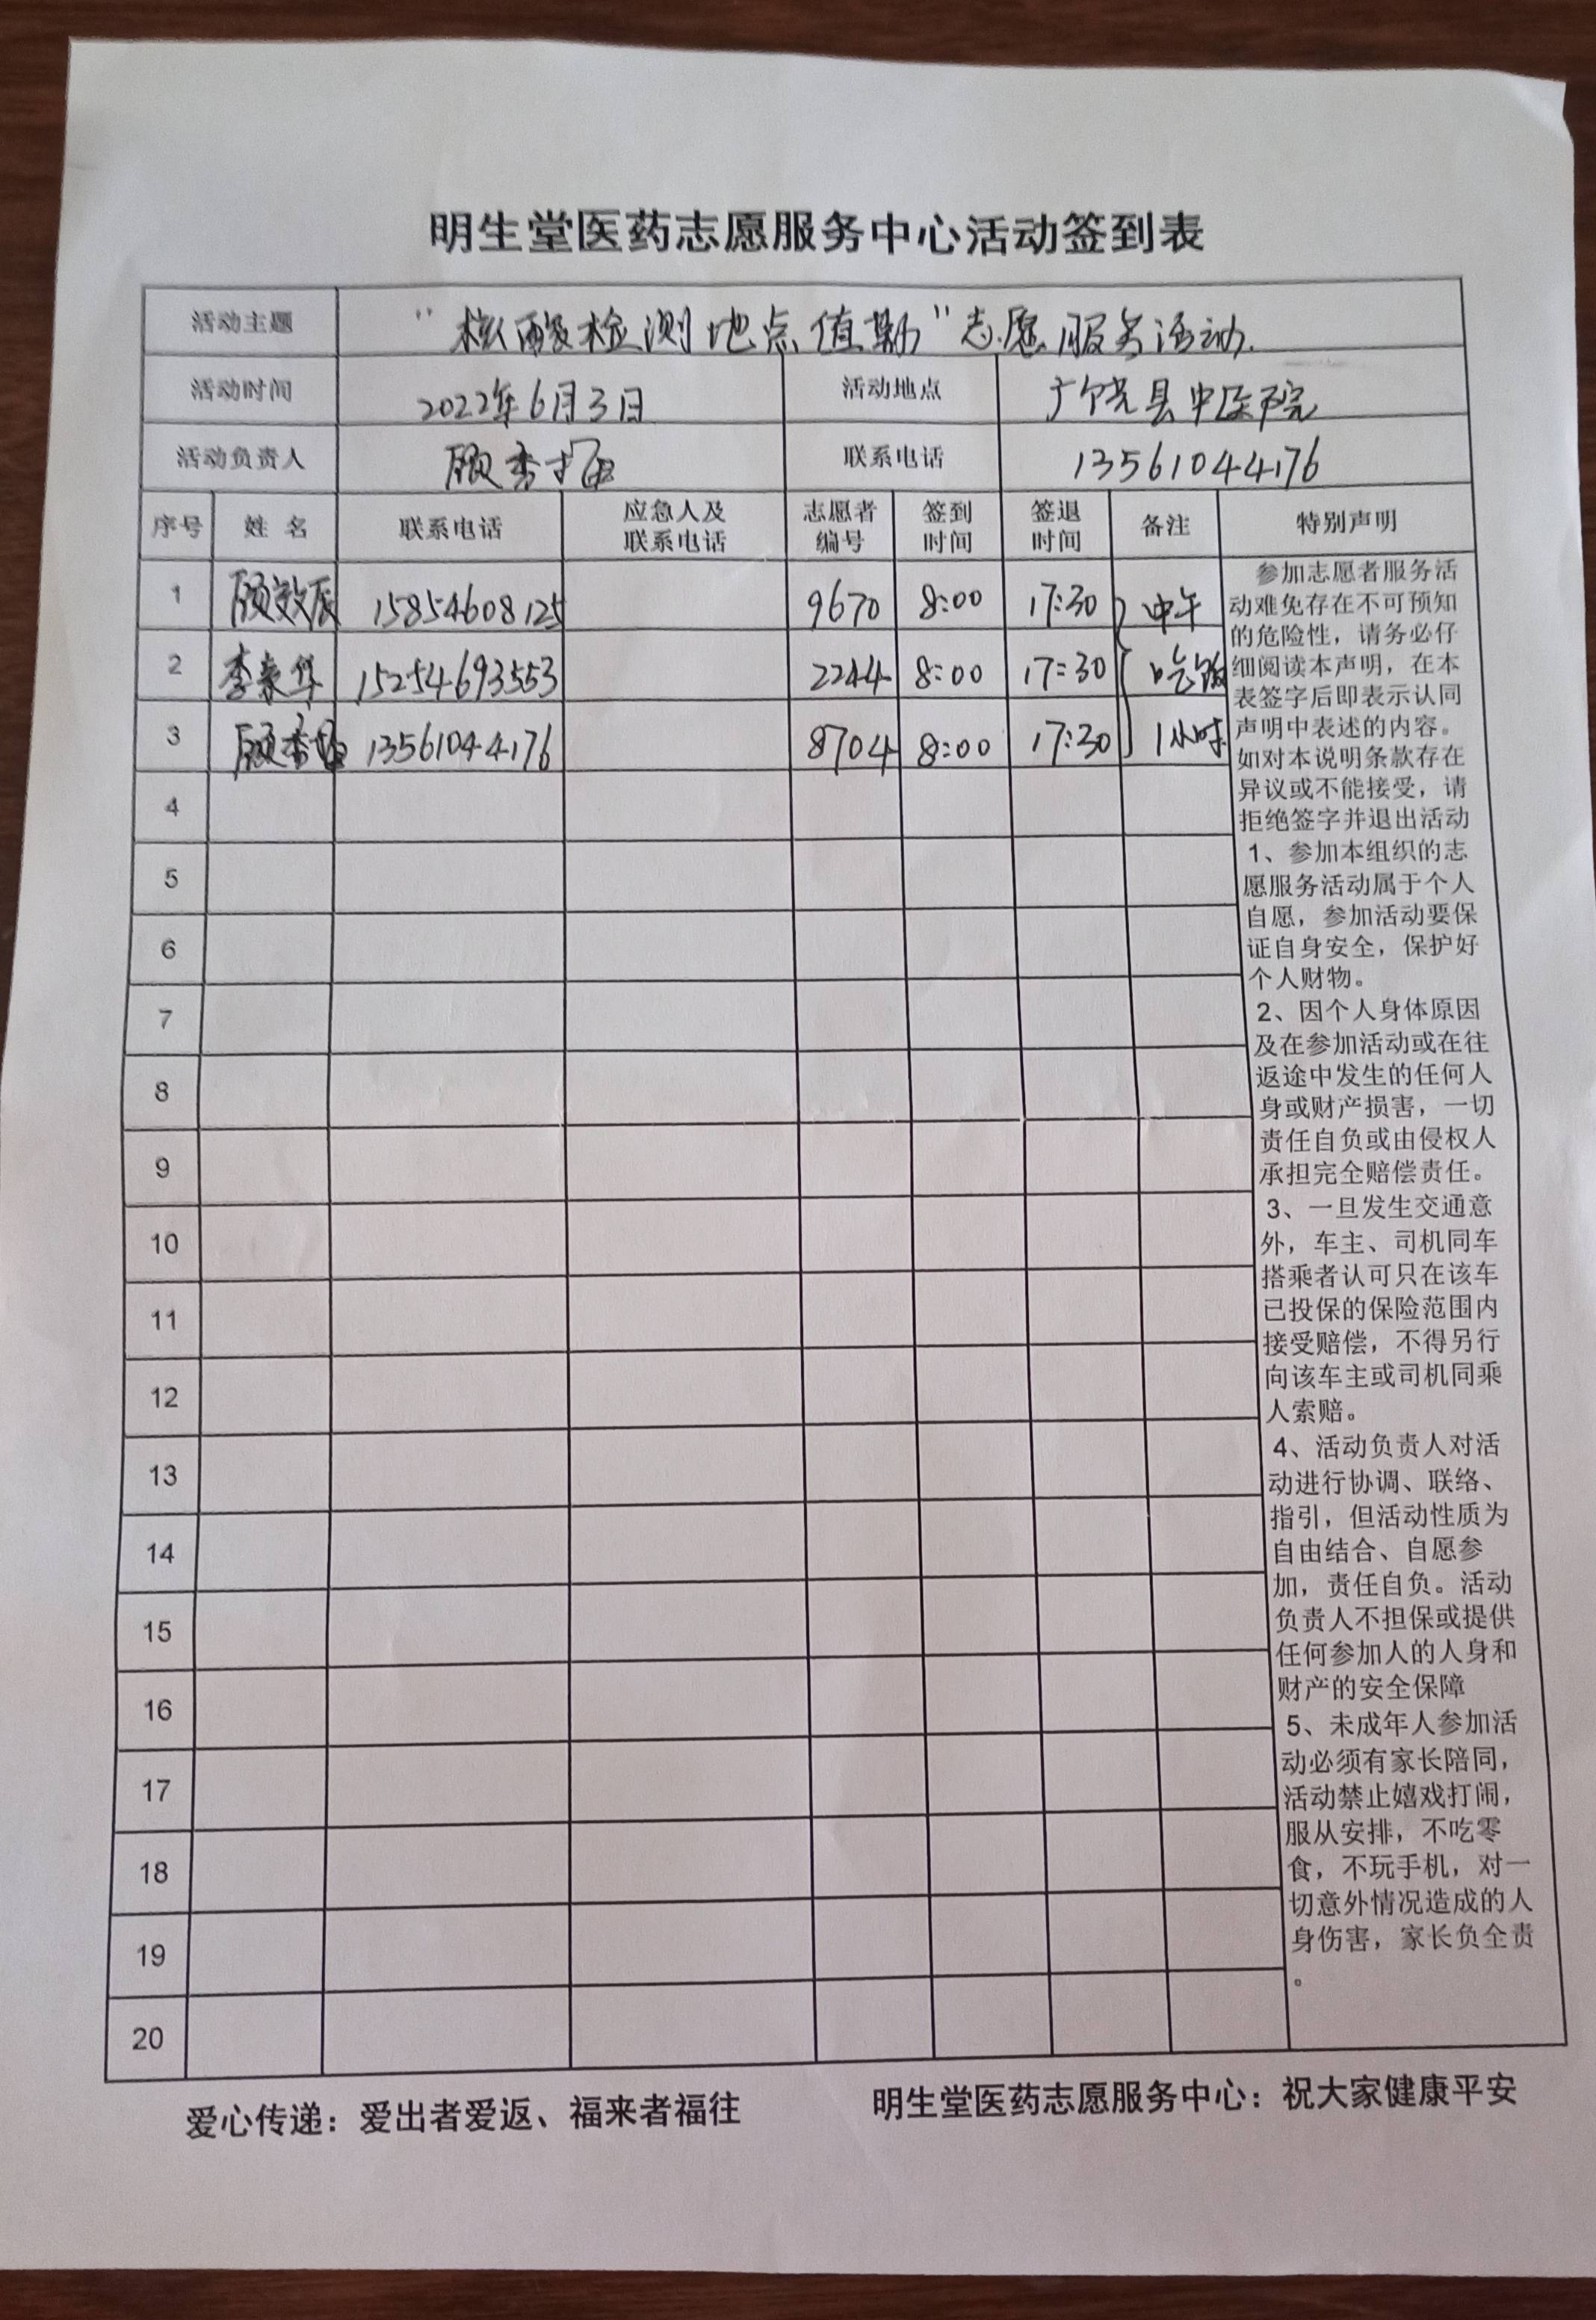 明生堂医药志愿服务中心活动签到表
活动主题 "核酸检测地点值勤"志愿服务活动.
活动时间 2022年6月3日 活动地点 广饶县中医院
活动负责人 顾秀 联系电话 13561044176
序号 姓 名 联系电话 应急人及联系电话 志愿者编号 签到时间 签退时间 备注 特别声明
1 顾效辰 15854608125 9670 8:00 17:30 中午
2 李 华 15254693553 2244 8:00 17:30 吃饭
3 顾秀 13561044176 8704 8:00 17:30 1小时
4
5
6
7
8
9
10
11
12
13
14
15
16
17
18
19
20
参加志愿者服务活
动难免存在不可预知
的危险性，请务必仔
细阅读本声明，在本
表签字后即表示认同
声明中表述的内容。
如对本说明条款存在
异议或不能接受，请
拒绝签字并退出活动
1、参加本组织的志
愿服务活动属于个人
自愿，参加活动要保
证自身安全，保护好
个人财物。
2、因个人身体原因
及在参加活动或在往
返途中发生的任何人
身或财产损害，一切
责任自负或由侵权人
承担完全赔偿责任。
3、一旦发生交通意
外，车主、司机同车
搭乘者认可只在该车
已投保的保险范围内
接受赔偿，不得另行
向该车主或司机同乘
人索赔。
4、活动负责人对活
动进行协调、联络、
指引，但活动性质为
自由结合、自愿参
加，责任自负。活动
负责人不担保或提供
任何参加人的人身和
财产的安全保障
5、未成年人参加活
动必须有家长陪同，
活动禁止嬉戏打闹，
服从安排，不吃零
食，不玩手机，对一
切意外情况造成的人
身伤害，家长负全责
。
爱心传递：爱出者爱返、福来者福往 明生堂医药志愿服务中心：祝大家健康平安